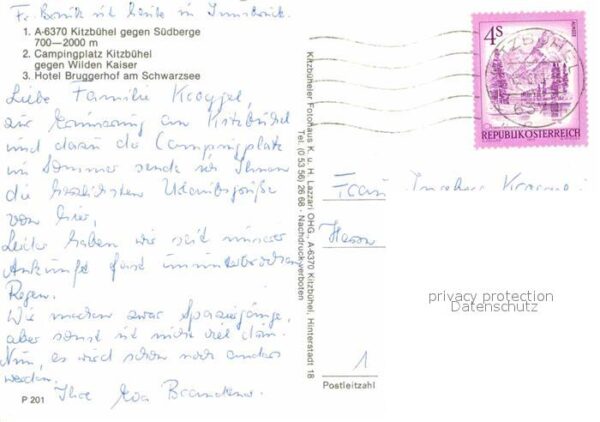 Fr. Bernik ist heute in Innsbruck.
1. A-6370 Kitzbühel gegen Südberge
700—2000 m
2. Campingplatz Kitzbühel
gegen Wilden Kaiser
3. Hotel Bruggerhof am Schwarzsee
Liebe Familie
zur Erinnerung an Kitzbühel
und daran die Campingplatz
im Sommer sende ich Ihnen
die herzlichsten Urlaubsgrüße
von hier,
Leider haben wir seit unserer
Ankunft fast ununterbrochen
Regen.
Wir machen zwar Spaziergänge,
aber sonst ist nicht viel drin.
Nun, es wird schon noch anders
werden.
Ihre Eva
P 201
Kitzbüheler Fotohaus K. u. H. Lazzari OHG., A-6370 Kitzbühel, Hinterstadt 18
Tel. (0 53 56) 26 68 · Nachdruck verboten
4S
REPUBLIK ÖSTERREICH
Frau
privacy protection
Datenschutz
1
Postleitzahl